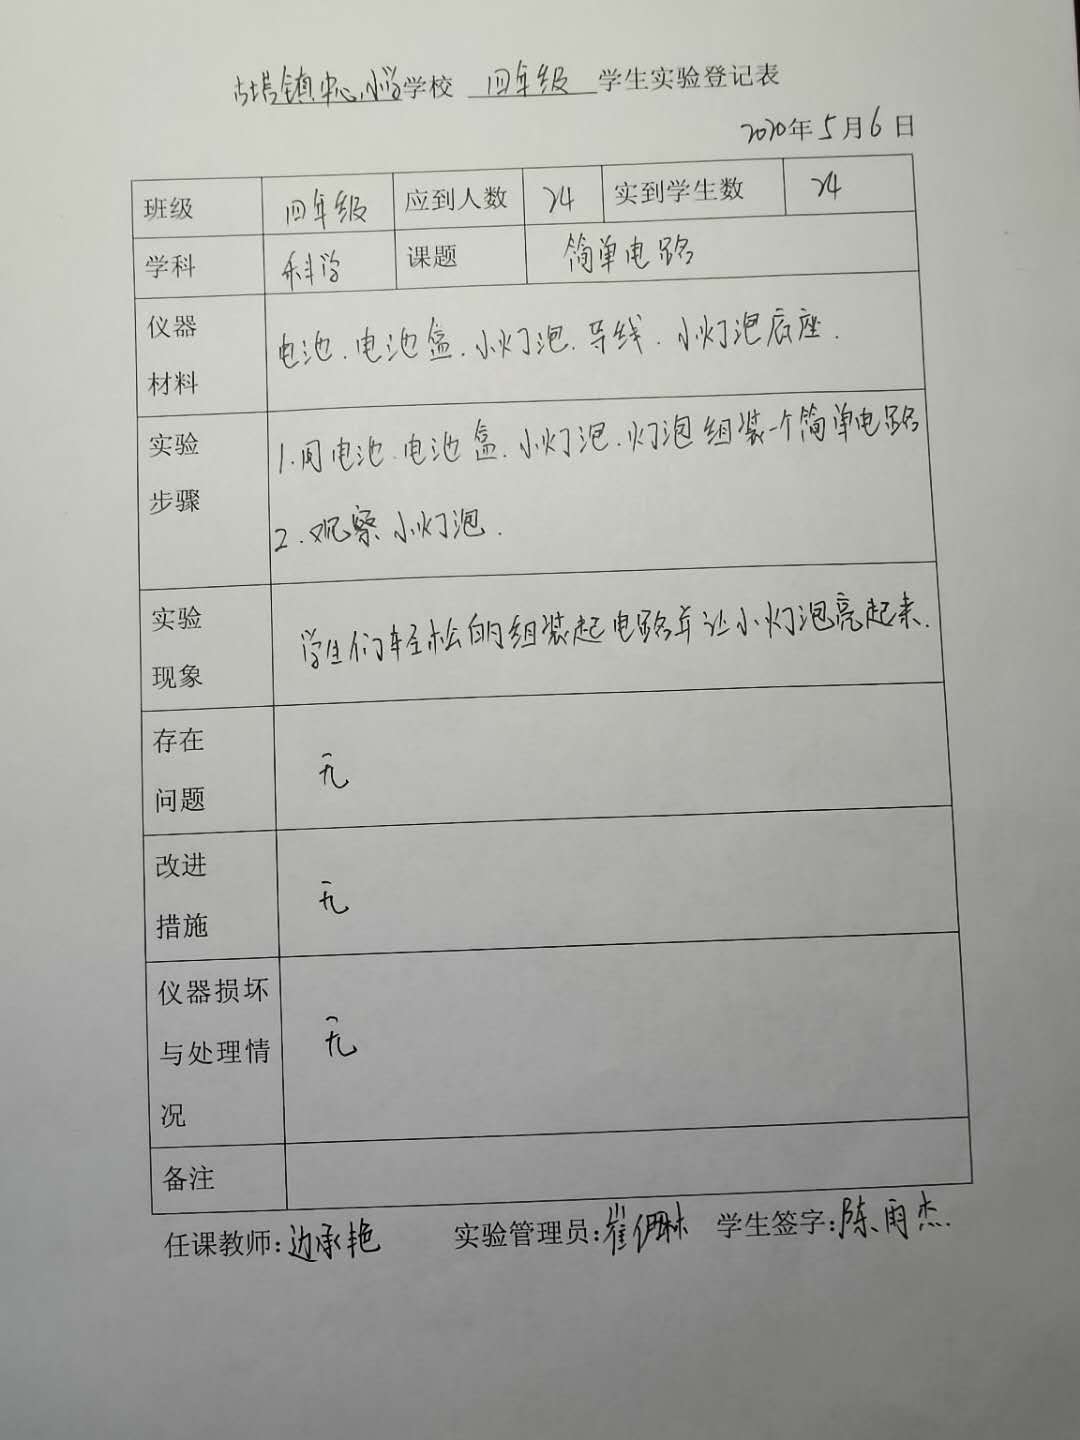 古塔镇中心小学学校 四年级 学生实验登记表
2020年5月6日
班级 四年级 应到人数 24 实到学生数 24
学科 科学 课题 简单电路
仪器
材料
电池、电池盒、小灯泡、导线、小灯泡底座.
实验
步骤
1.用电池、电池盒、小灯泡、灯泡组装一个简单电路
2.观察小灯泡.
实验
现象
学生们轻松的组装起电路并让小灯泡亮起来.
存在
问题
无
改进
措施
无
仪器损坏
与处理情
况
无
备注
任课教师:边承艳 实验管理员:崔 学生签字:陈雨杰.